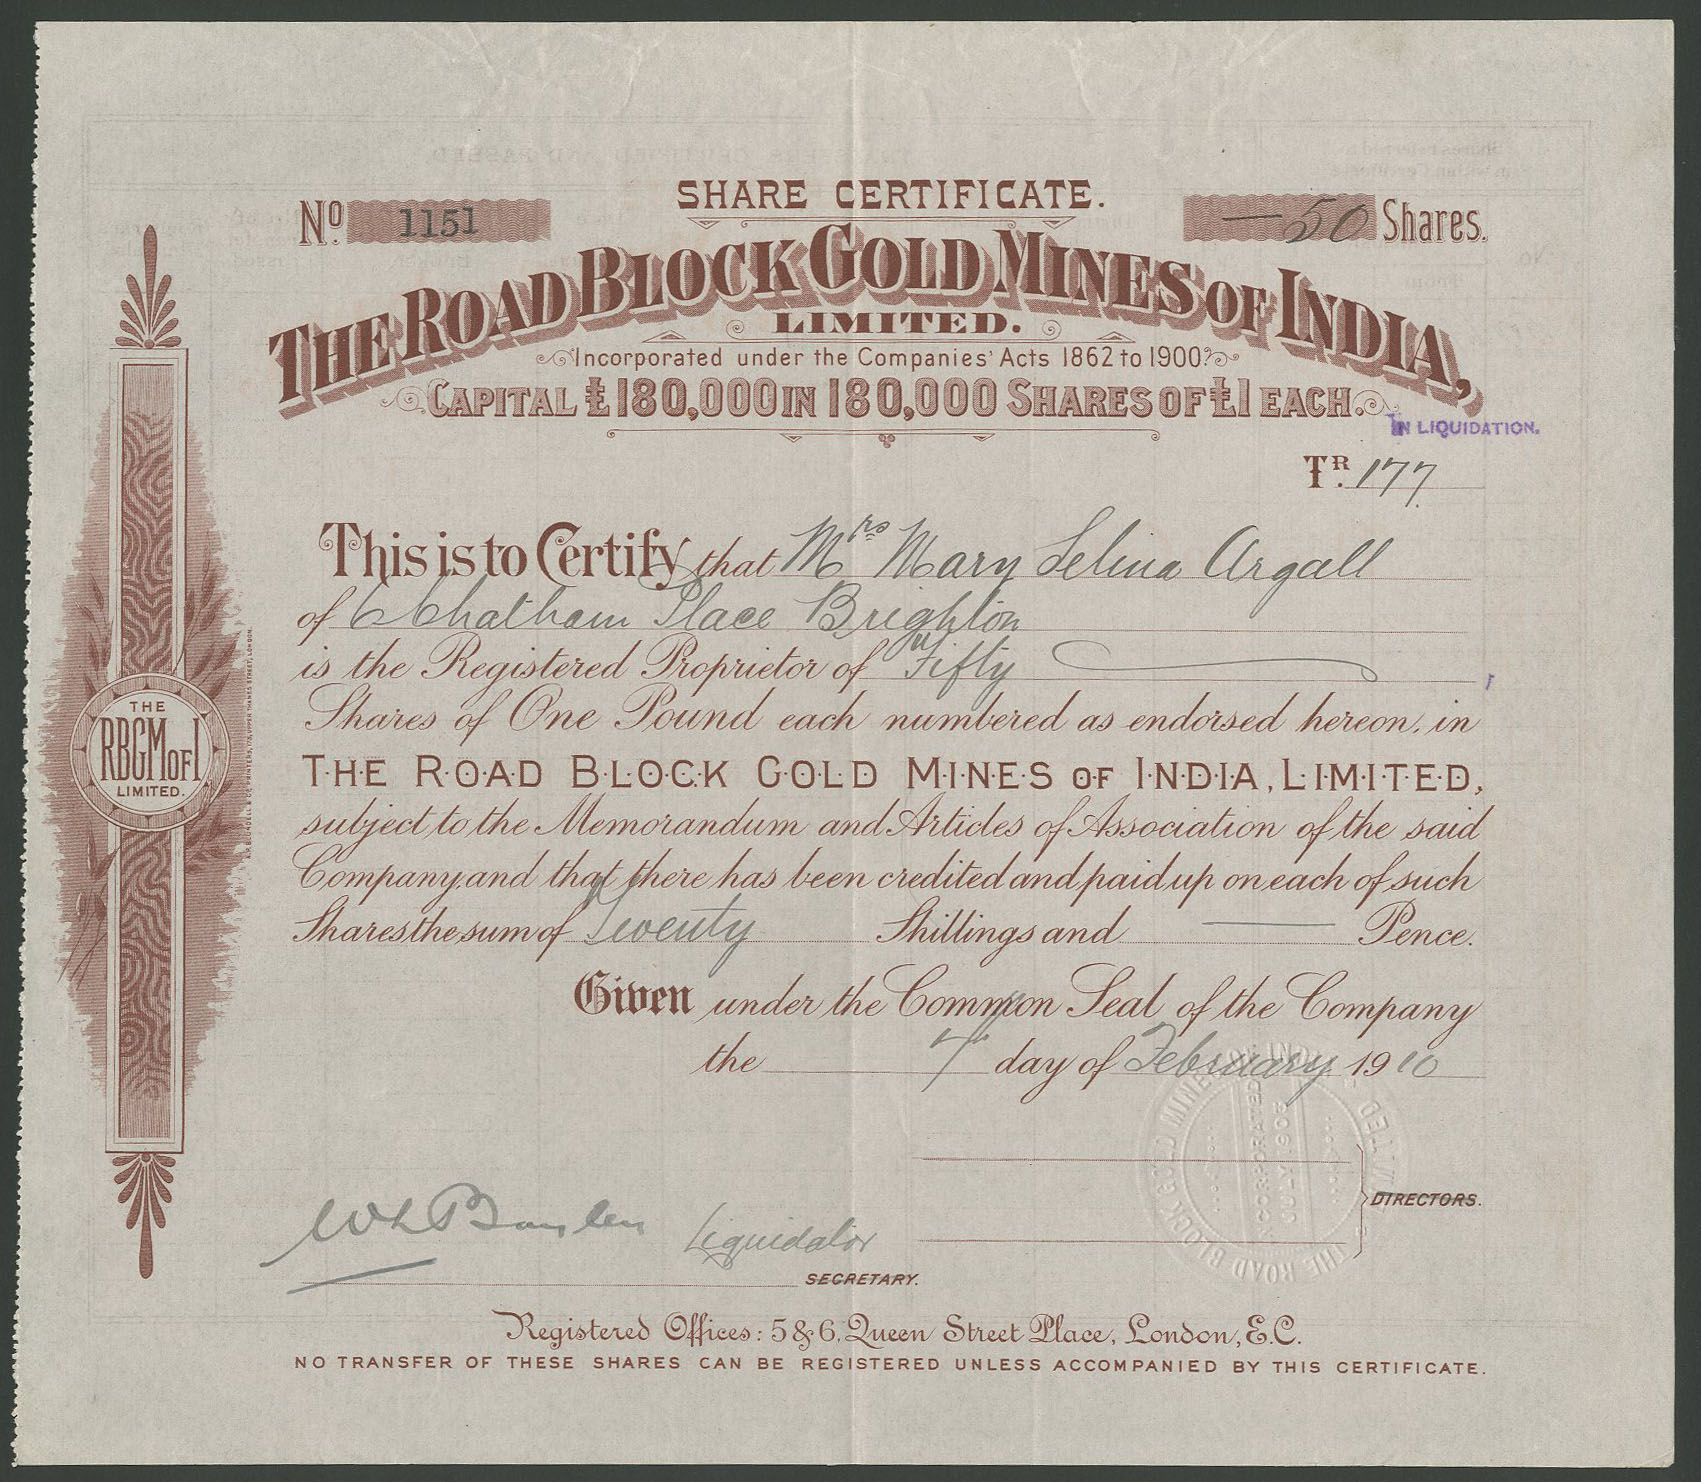 SHARE CERTIFICATE.
No. 1151
— 50 Shares.
THE ROAD BLOCK GOLD MINES OF INDIA,
LIMITED.
Incorporated under the Companies' Acts 1862 to 1900.
CAPITAL £180,000 IN 180,000 SHARES OF £1 EACH.
IN LIQUIDATION.
TR. 177
This is to Certify that Mrs Mary Selina Argall
of 6 Chatham Place Brighton
is the Registered Proprietor of Fifty
Shares of One Pound each numbered as endorsed hereon, in
THE ROAD BLOCK GOLD MINES OF INDIA, LIMITED,
subject to the Memorandum and Articles of Association of the said
Company, and that there has been credited and paid up on each of such
Shares the sum of Twenty Shillings and — Pence.
Given under the Common Seal of the Company
the 7th day of February 1910
DIRECTORS.
Liquidator
SECRETARY.
Registered Offices: 5 & 6, Queen Street Place, London, E.C.
NO TRANSFER OF THESE SHARES CAN BE REGISTERED UNLESS ACCOMPANIED BY THIS CERTIFICATE.
THE
RBGM OF I
LIMITED.
THE ROAD BLOCK GOLD MINES OF INDIA LIMITED